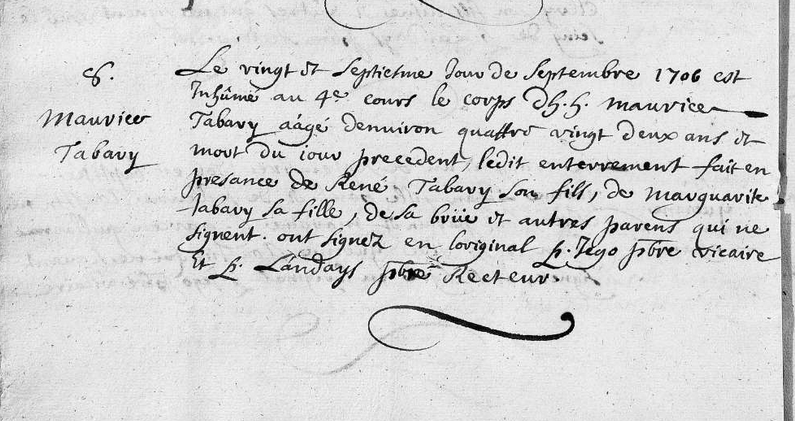 S.
Maurice
Tabary
Le vingt et septietme Jour de Septembre 1706 est
Inhûmé au 4e cours le corps Dh. h. Maurice
Tabary aâgé denviron quattre vingt deux ans et
mort du jour precedent, ledit enterrement fait en
presance de René Tabary son fils, de Marguarite
tabary sa fille, de sa brüe et autres parens qui ne
signent. ont signez en loriginal p. Jego pbre vicaire
Et p. Landays pbre Recteur